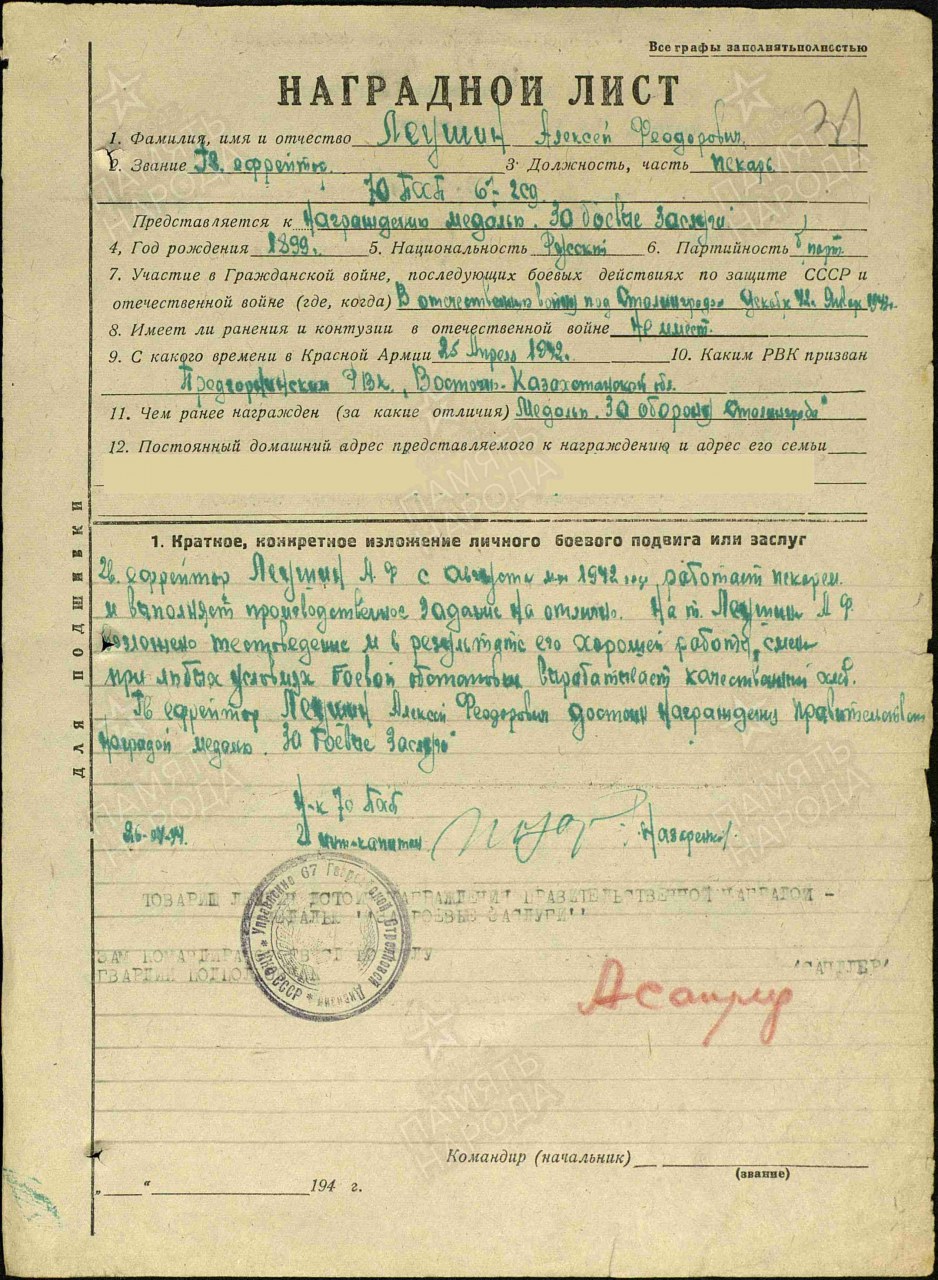 Все графы заполнятьполностью
НАГРАДНОЙ ЛИСТ
1. Фамилия, имя и отчество Леушин Алексей Феодорович
2. Звание Гв. ефрейтор. 3. Должность, часть пекарь
70 ПАБ 67 гсд
Представляется к награждению медалью "За боевые заслуги"
4, Год рождения 1899г. 5. Национальность Русский 6. Партийность б/парт.
7. Участие в Гражданской войне, последующих боевых действиях по защите СССР и
отечественной войне (где, когда) В отечественную войну под Сталинградом Декабрь 42г. Январь 1943г.
8. Имеет ли ранения и контузии в отечественной войне Не имеет.
9. С какого времени в Красной Армии 25 Апреля 1942г. 10. Каким РВК призван
Предгорненским РВК, Восточно-Казахстанской обл.
11. Чем ранее награжден (за какие отличия) Медалью "За оборону Сталинграда"
12. Постоянный домашний адрес представляемого к награждению и адрес его семьи
ДЛЯ ПОДШИВКИ
1. Краткое, конкретное изложение личного боевого подвига или заслуг
Гв. ефрейтор Леушин А.Ф с августа м-ца 1942 года работает пекарем
и выполняет производственное задание на отлично. На т. Леушина А.Ф.
возложено тестоведение и в результате его хорошей работы, смена
при любых условиях боевой обстановки вырабатывает качественный хлеб.
Гв ефрейтор Леушин Алексей Феодорович достоин награждения правительственной
наградой медалью "За боевые заслуги"
Н-к 70 ПАБ
26-04-44. инт-капитан /Назаренко/
ТОВАРИЩ ДОСТО НАГРАЖДЕНИЯ ПРАВИТЕЛЬСТВЕННОЙ НАГРАДОЙ -
БОЕВЫЕ ЗАСЛУГИ"
ЗАМ КОМАНДИРА
ГВАРДИИ ПОДПОЛ /САПДЛЕР/
Управление 67 Гвардейской Стрелковой Дивизии * НКО СССР *
Командир (начальник)
(звание)
"___" ___ 194 г.
ПАМЯТЬ НАРОДА